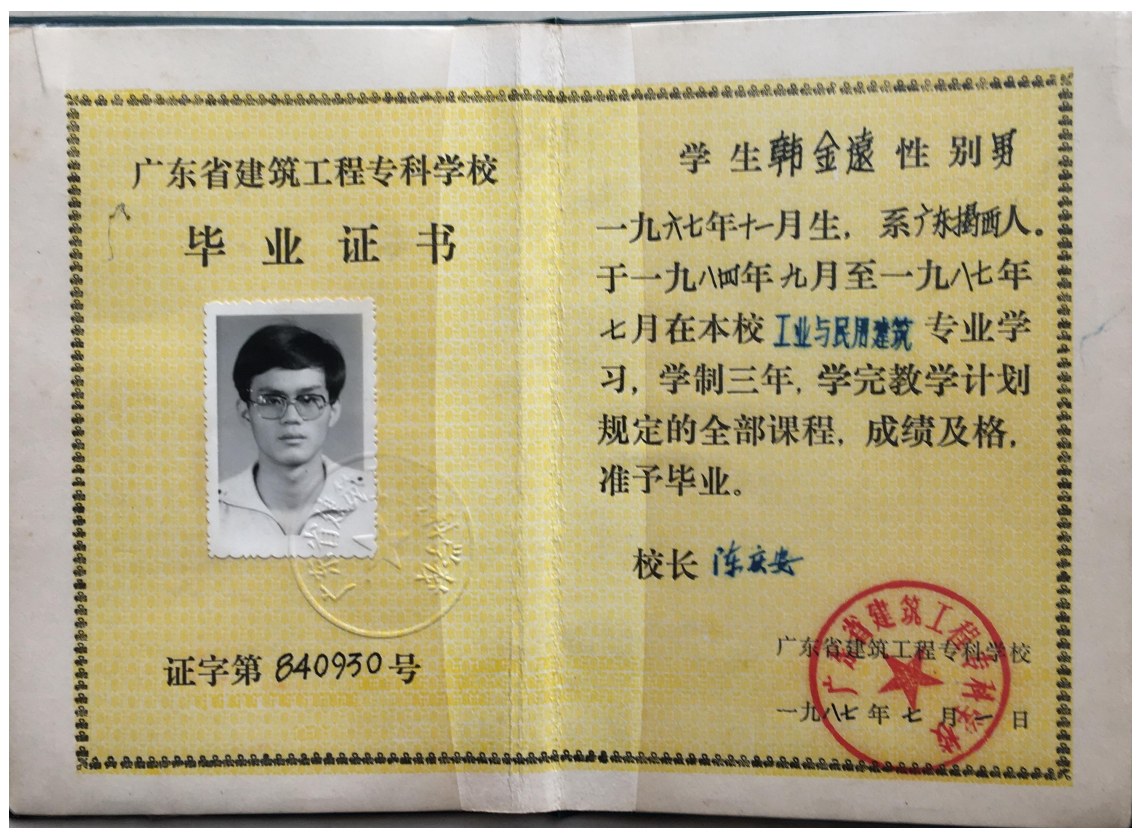 广东省建筑工程专科学校
毕业证书
证字第840930号
学生韩金远性别男
一九六七年十一月生，系广东揭西人。
于一九八四年九月至一九八七年
七月在本校工业与民用建筑专业学
习，学制三年，学完教学计划
规定的全部课程，成绩及格，
准予毕业。
校长 陈庆安
广东省建筑工程专科学校
一九八七年七月一日
广东省建筑工程专科学校